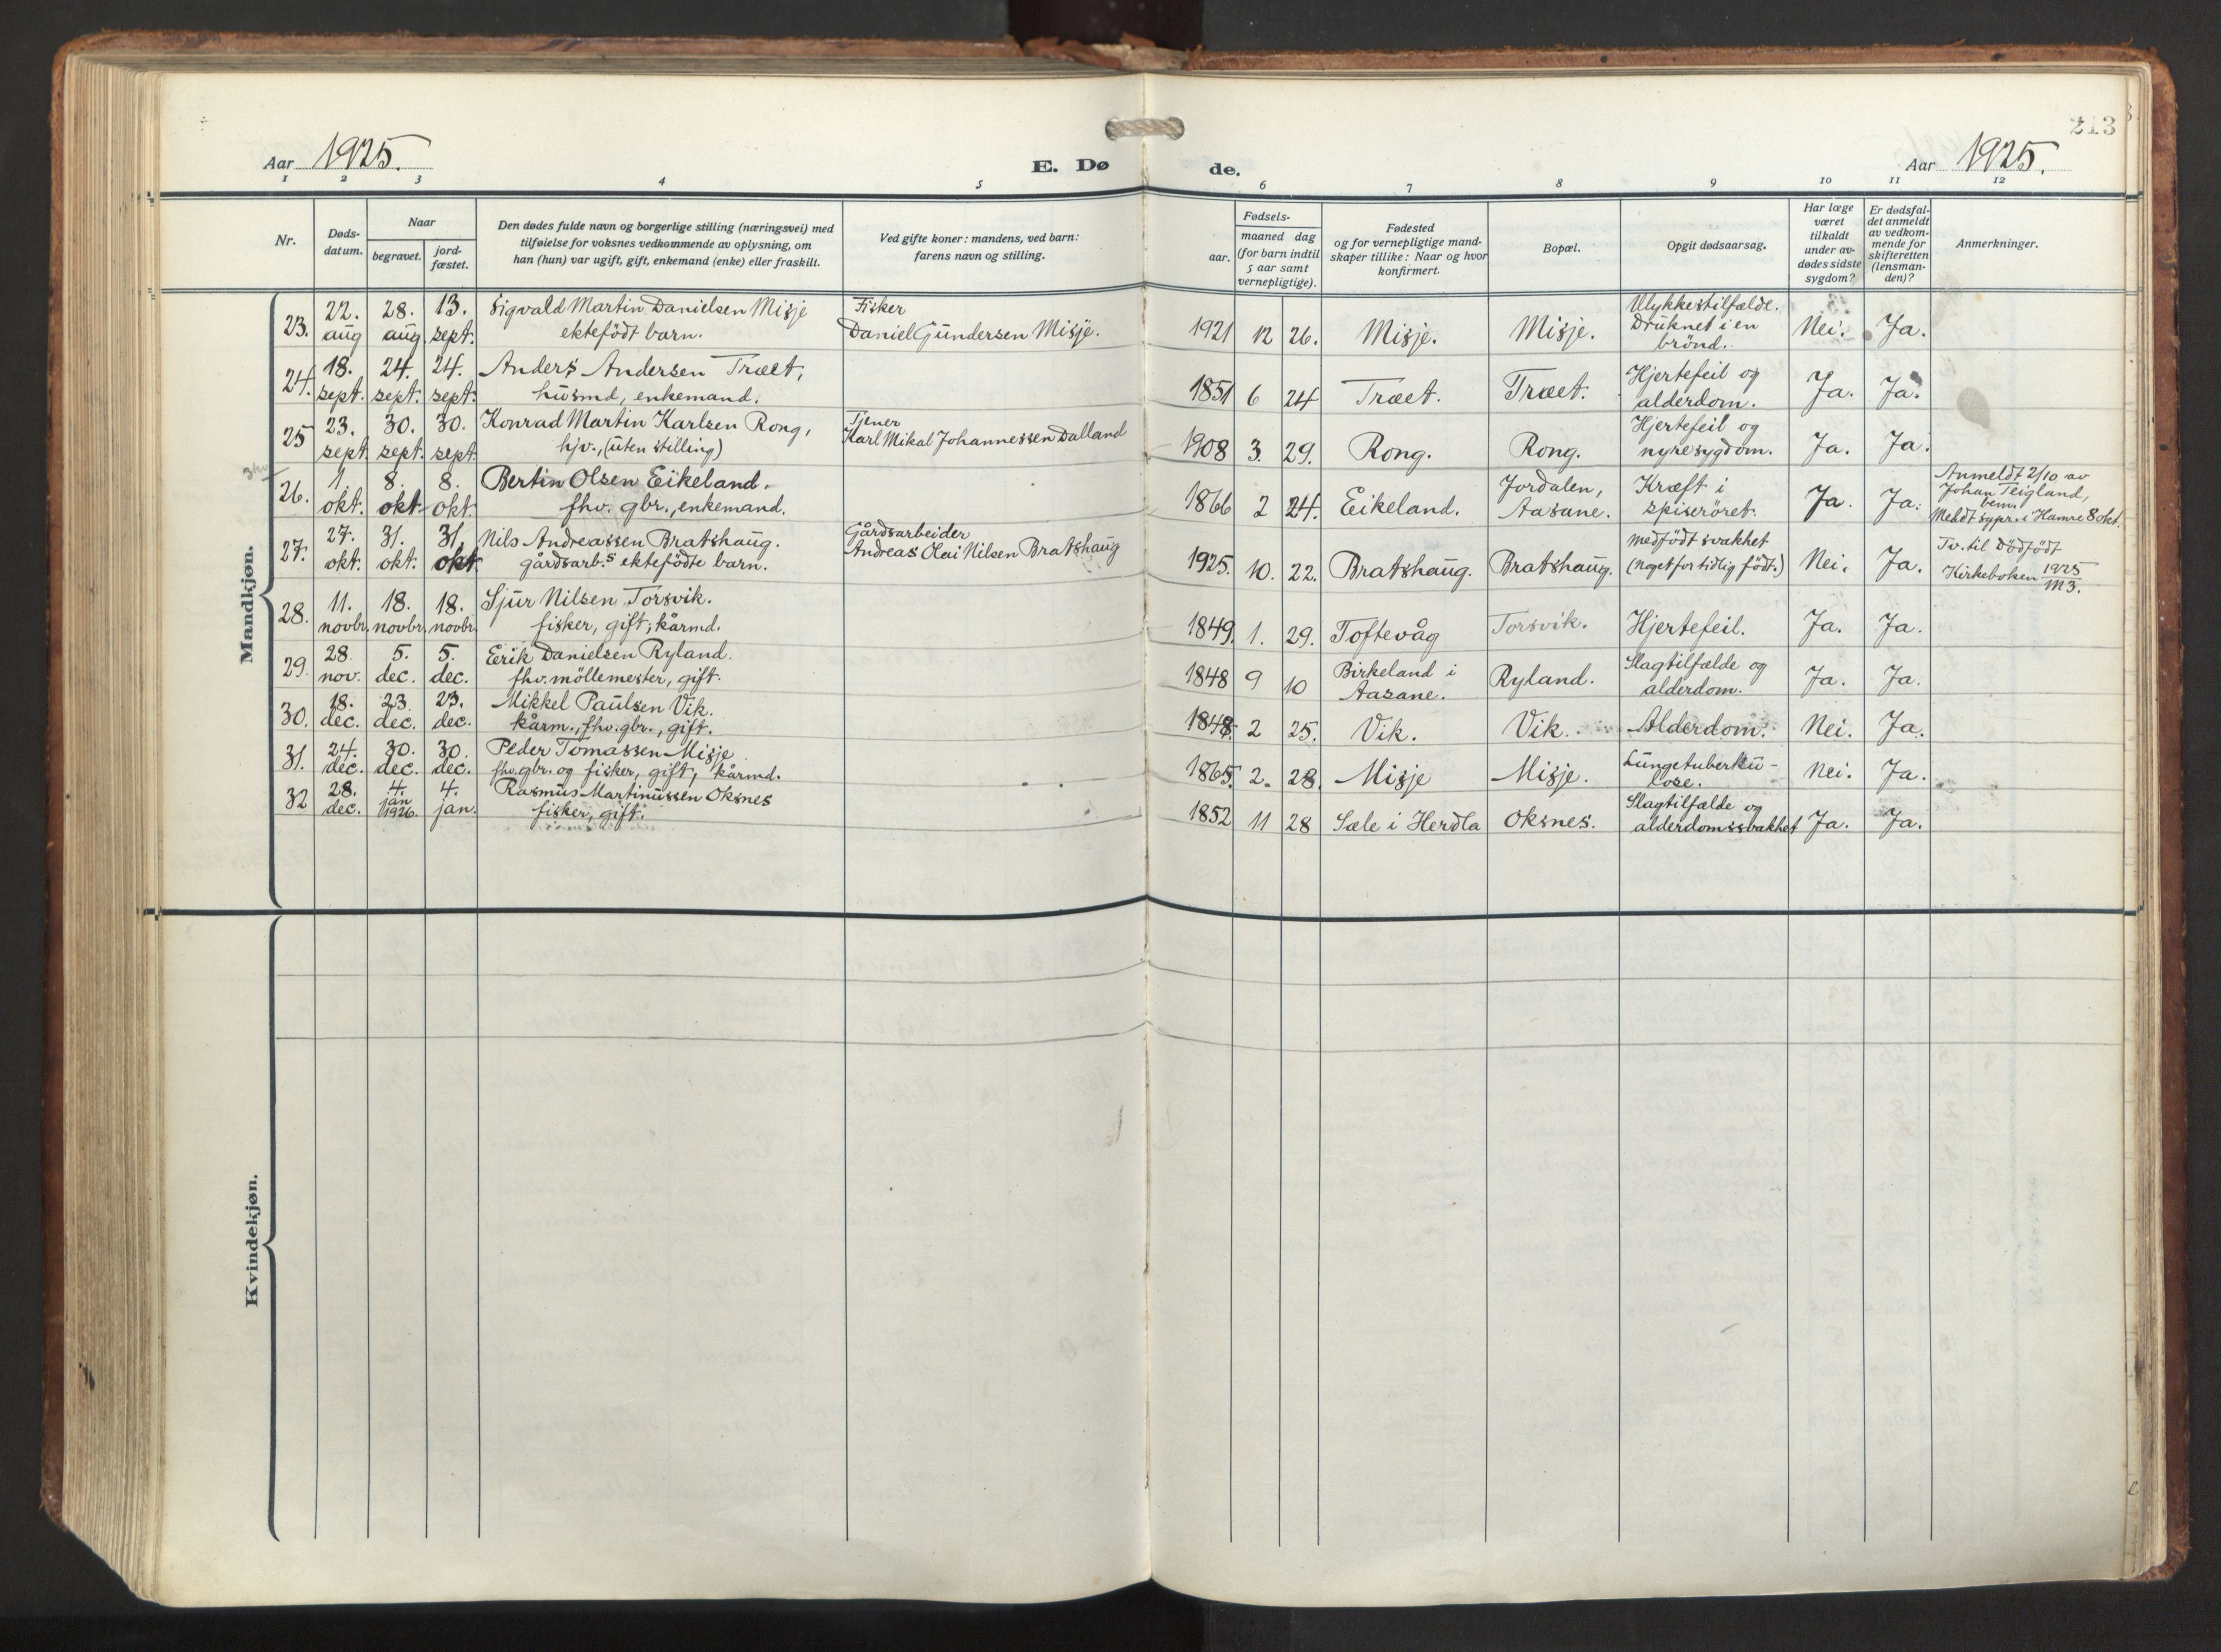 213
Aar 1925.
E. Dø
de.
Aar 1925.
1 2 3 4 5 6 7 8 9 10 11 12
Nr.
Døds-
datum.
Naar
begravet.
jord-
fæstet.
Den dødes fulde navn og borgerlige stilling (næringsvei) med
tilføielse for voksnes vedkommende av oplysning, om
han (hun) var ugift, gift, enkemand (enke) eller fraskilt.
Ved gifte koner: mandens, ved barn:
farens navn og stilling.
Fødsels-
aar.
maaned dag
(for barn indtil
5 aar samt
vernepligtige).
Fødested
og for vernepligtige mand-
skaper tillike: Naar og hvor
konfirmert.
Bopæl.
Opgit dødsaarsag.
Har læge
været
tilkaldt
under av-
dødes sidste
sygdom?
Er dødsfal-
det anmeldt
av vedkom-
mende for
skifteretten
(lensman-
den)?
Anmerkninger.
Mandkjøn.
23. 22. aug 28. aug. 13. sept.
Sigvald Martin Danielsen Misje
ektefödt barn.
Fisker
Daniel Gundersen Misje.
1921 12 26. Misje. Misje.
Ulykkestilfælde.
Druknet i en
brönd.
Nei. Ja.
24. 18. sept. 24. sept. 24. sept.
Anders Andersen Træet,
husmd, enkemand.
1851 6 24 Træet. Træet.
Hjertefeil og
alderdom.
Ja. Ja.
25 23. sept. 30. sept. 30. sept.
Konrad Martin Karlsen Rong,
hjv., (uten stilling)
Tjener
Karl Mikal Johannessen Dalland
1908 3. 29. Rong. Rong.
Hjertefeil og
nyresygdom.
Ja. Ja.
26. 1. okt. 8. okt 8. okt.
Bertin Olsen Eikeland.
fhv. gbr., enkemand.
1866 2 24. Eikeland.
Jordalen,
Aasane.
Kræft i
spiseröret.
Ja. Ja.
Anmeldt 2/10 av
Johan Teigland,
bem.
Meldt sypr. i Hamre 8 okt.
27. 27. okt. 31. okt. 31. okt.
Nils Andreassen Bratshaug.
gårdsarb.s ektefödte barn.
Gårdsarbeider
Andreas Olai Nilsen Bratshaug
1925. 10. 22. Bratshaug. Bratshaug.
medfödt svakhet
(noget for tidlig födt.)
Nei. Ja.
Tv. til Dödfödt
Kirkeboken 1925
M 3.
28. 11. novbr. 18. novbr. 18. novbr.
Sjur Nilsen Torsvik.
fisker, gift, kårmd.
1849. 1. 29. Toftevåg Torsvik. Hjertefeil. Ja. Ja.
29. 28. nov. 5. dec. 5. dec.
Eerik Danielsen Ryland.
fhv. möllemester, gift.
1848 9 10
Birkeland i
Aasane.
Ryland.
Slagtilfælde og
alderdom.
Ja. Ja.
30. 18. dec. 23 dec. 23. dec.
Mikkel Paulsen Vik.
kårm., fhv. gbr., gift.
1848. 2 25. Vik. Vik. Alderdom. Nei. Ja.
31. 24. dec. 30. dec. 30. dec.
Peder Tomassen Misje
fhv. gbr. og fisker, gift, kårmd.
1865. 2. 28. Misje Misje.
Lungetuberku-
lose.
Nei. Ja.
32 28. dec. 4. jan 1926. 4. jan.
Rasmus Martinussen Oksnes
fisker, gift.
1852 11 28 Sæle i Herdla Oksnes.
Slagtilfælde og
alderdomssvakhet
Ja. Ja.
Kvindekjøn.